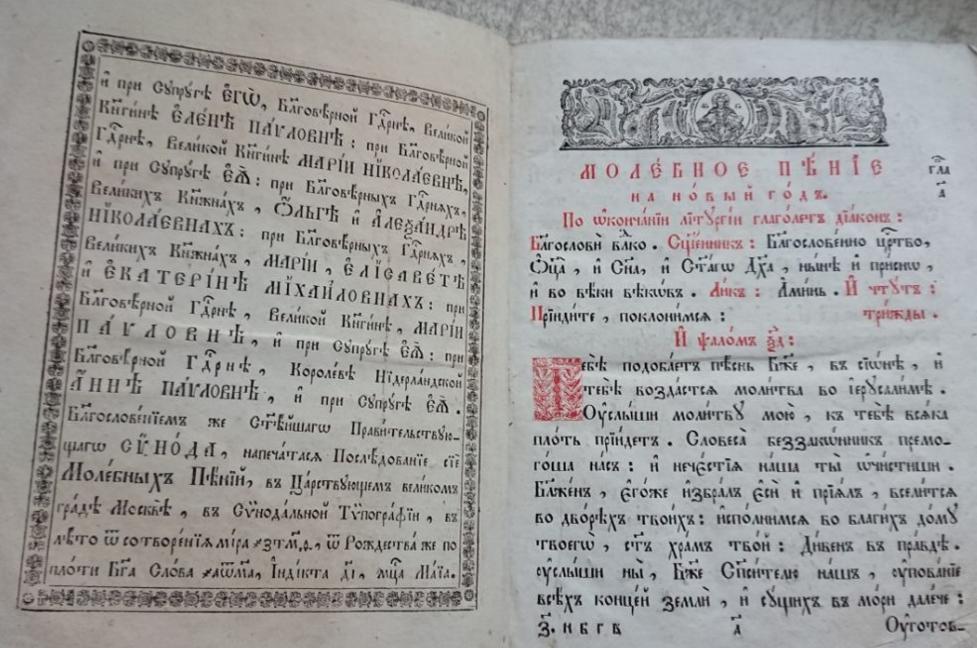 и҆ при Сꙋпрꙋгѣ Е҆гѡ̀, Бл҃говѣрной Гдⷭ҇рнѣ, Великой
Кнѧгинѣ ЕЛЕНѢ ПАѴЛОВНѢ: при Бл҃говѣрной
Гдⷭ҇рнѣ, Великой Кнѧгинѣ МАРІИ НІКОЛАЕВНѢ,
и҆ при Сꙋпрꙋгѣ Е҆ѧ̀: при Бл҃говѣрныхъ Гдⷭ҇рнѧхъ,
Великихъ Кнѧжнахъ, Ѻ҆ЛЬГѢ и҆ АЛЕѮАНДРѢ
НІКОЛАЕВНАХЪ: при Бл҃говѣрныхъ Гдⷭ҇рнѧхъ,
Великихъ Кнѧжнахъ, МАРІИ, ЕЛІСАВЕТѢ
и҆ ЕКАТЕРІНѢ МІХАИЛОВНАХЪ: при
Бл҃говѣрной Гдⷭ҇рнѣ, Великой Кнѧгинѣ, МАРІИ
ПАѴЛОВНѢ, и҆ при Сꙋпрꙋгѣ Е҆ѧ̀: при
Бл҃говѣрной Гдⷭ҇рнѣ, Королевѣ Нїдерландской
АННѢ ПАѴЛОВНѢ, и҆ при Сꙋпрꙋгѣ Е҆ѧ̀.
Бл҃гословенїемъ же Ст҃ѣйшагѡ Правительствꙋю-
щагѡ СѴНОДА, напечатасѧ Послѣдованїе сїе
Молебныхъ Пѣнїй, въ Царствꙋющемъ великомъ
градѣ Москвѣ, въ Сѷнодальной Тѷпографїи, въ
лѣто ѿ сотворенїѧ мїра ҂зтм҃ѳ, ѿ Рождества же по
плоти Бг҃а Слова ҂аѡм҃а, Індїкта д҃і, мцⷭ҇а Маїа.
МОЛЕ́БНОЕ ПѢ́НІЕ
гла
а҃
на но́вый го́дъ.
По ѡ҆кончанїи лїтꙋргїи глаголетъ дїаконъ:
Бл҃гослови̂ влⷣко. Сщ҃енникъ: Бл҃гословенно црⷭ҇тво,
Ѻ҆ц҃а̀, и҆ Сн҃а, и҆ Ст҃агѡ Дх҃а, нынѣ и҆ приснѡ,
и҆ во вѣки вѣкѡвъ. Ликъ: А҆минь. И҆ чтꙋтъ:
Прїидите, поклонимсѧ: трижды.
И҆ ѱаломъ ѯ҃д:
Тебѣ подобаетъ пѣснь Бж҃е, въ сїѡнѣ, и҆
тебѣ воздастсѧ молитва во і҆ерꙋсалимѣ.
Оу҆слыши молитвꙋ мою, къ тебѣ всѧка
плоть прїидетъ. Словеса беззаконникъ премо-
гоша насъ: и҆ нечестїѧ наша ты ѡ҆чистиши.
Бл҃женъ, е҆гоже и҆збралъ е҆сѝ и҆ прїѧлъ, вселитсѧ
во дворѣхъ твоихъ: и҆сполнимсѧ во благихъ домꙋ
твоегѡ, ст҃ъ храмъ твой: Дивенъ въ правдѣ.
оу҆слыши ны, Бж҃е Сп҃сителю нашъ, оу҆пованїе
всѣхъ концей земли, и҆ сꙋщихъ въ мори далече:
З. и в г в а҃ Оу҆готов-